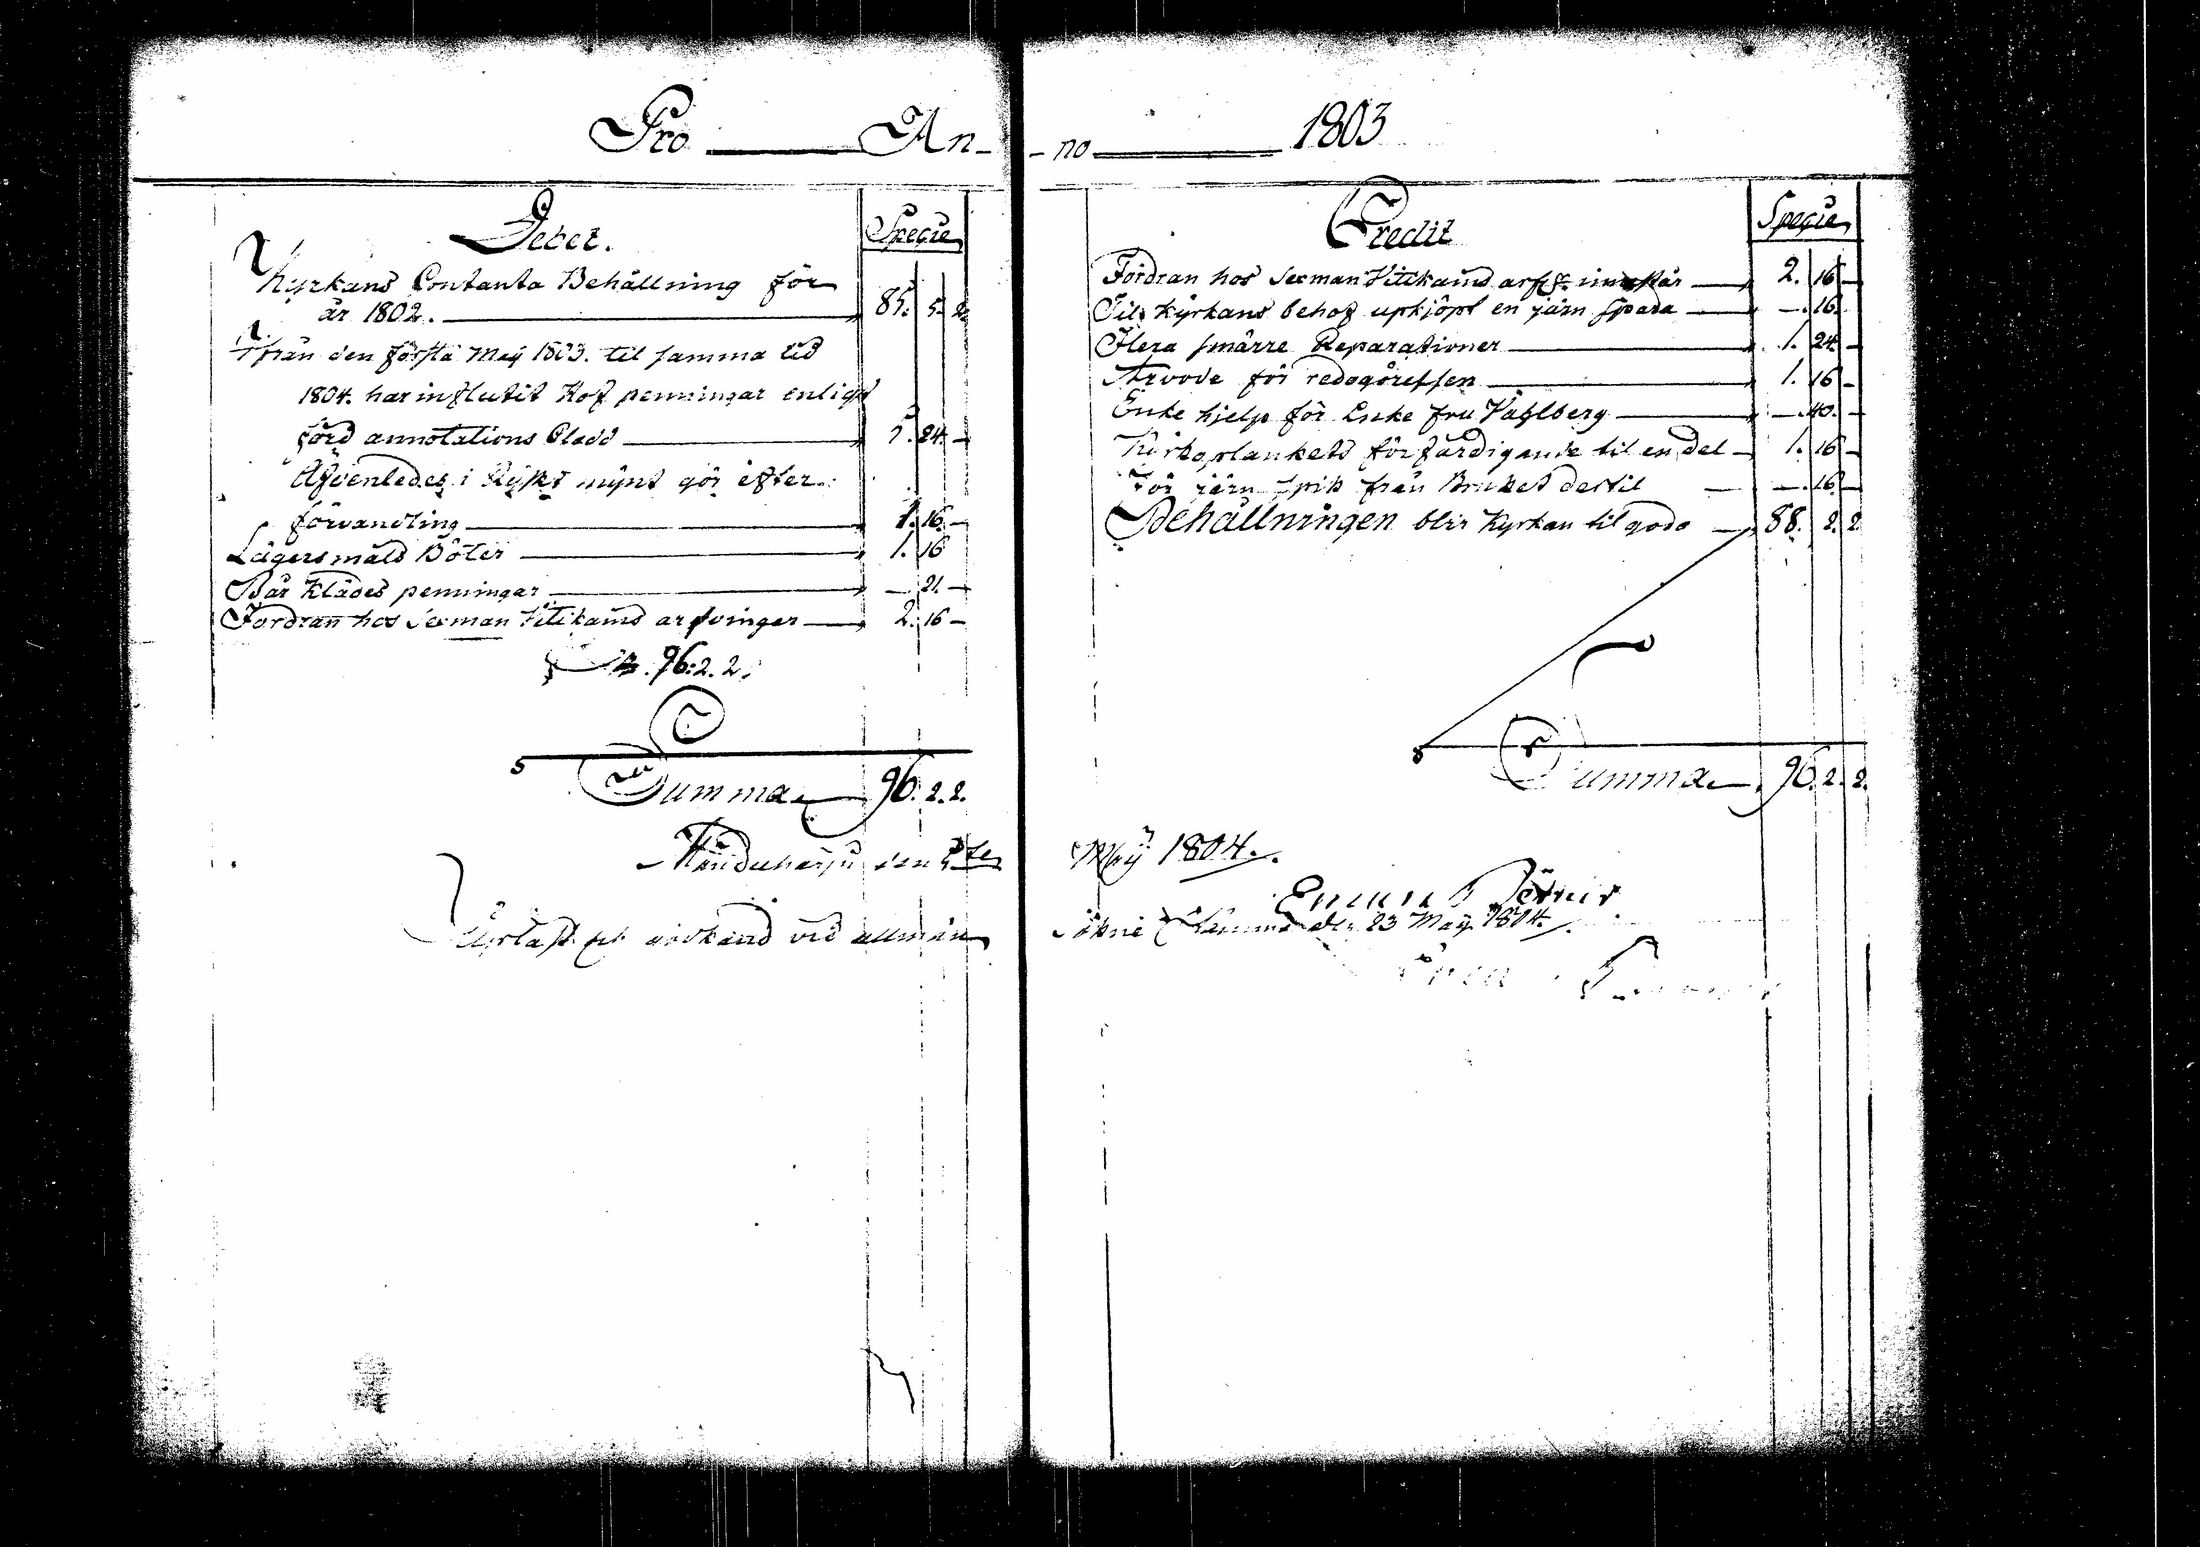 Pro An-
Debet. Specie
Kyrkans Contanta Behållning för
år 1802. 85. 5. 2
Ifrån den första Maÿ 1803. til samma tid
1804. har influtit Hof penningar enligt
förd annotations Bladd 5. 24. -
Äfvenledes i Ryskt mÿnt gör efter
förvandling 1. 16. -
Lägersmåls Böter 1. 16
Bår Klädes penningar - 21. -
Fordran hos Sexman Vitikains arfvingar 2. 16 -
96:2.2.
Summa 96. 2. 2.
den
Upläst och vid allmän
-no 1803
Credit Specie
Fordran hos Sexman Vitikains arf innestår 2. 16 -
Til Kyrkans behof upkjöpt en järn spada -. 16.
Flera smärre Reparationer 1. 24. -
Arvode för redogörelsen 1. 16 -
Enke hjelp för Enke fru Vahlberg -. 40. -
Kÿrkoplankets förfärdigande til en del 1. 16 -
För järn spik från Bruket dertil -. 16 -
Behållningen blir Kyrkan til godo 88. 2. 2
Summa 96. 2. 2.
Maÿ 1804.
Sockne Stämma d. 23 Maÿ 1804.